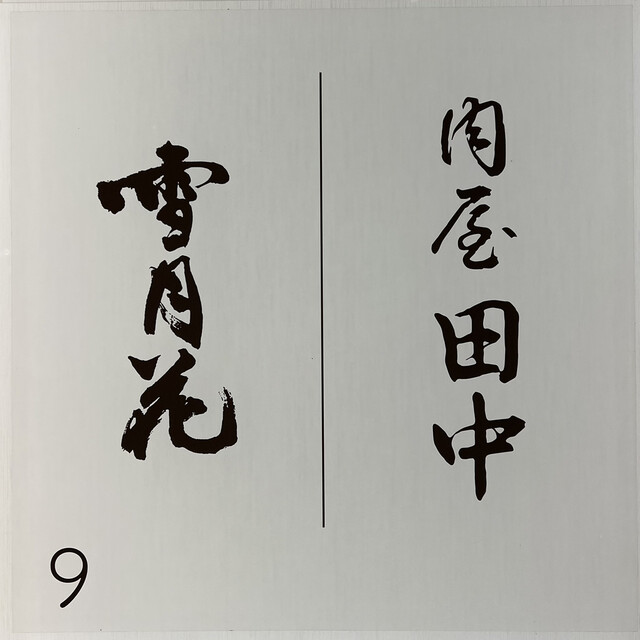 肉屋田中
雪月花
9